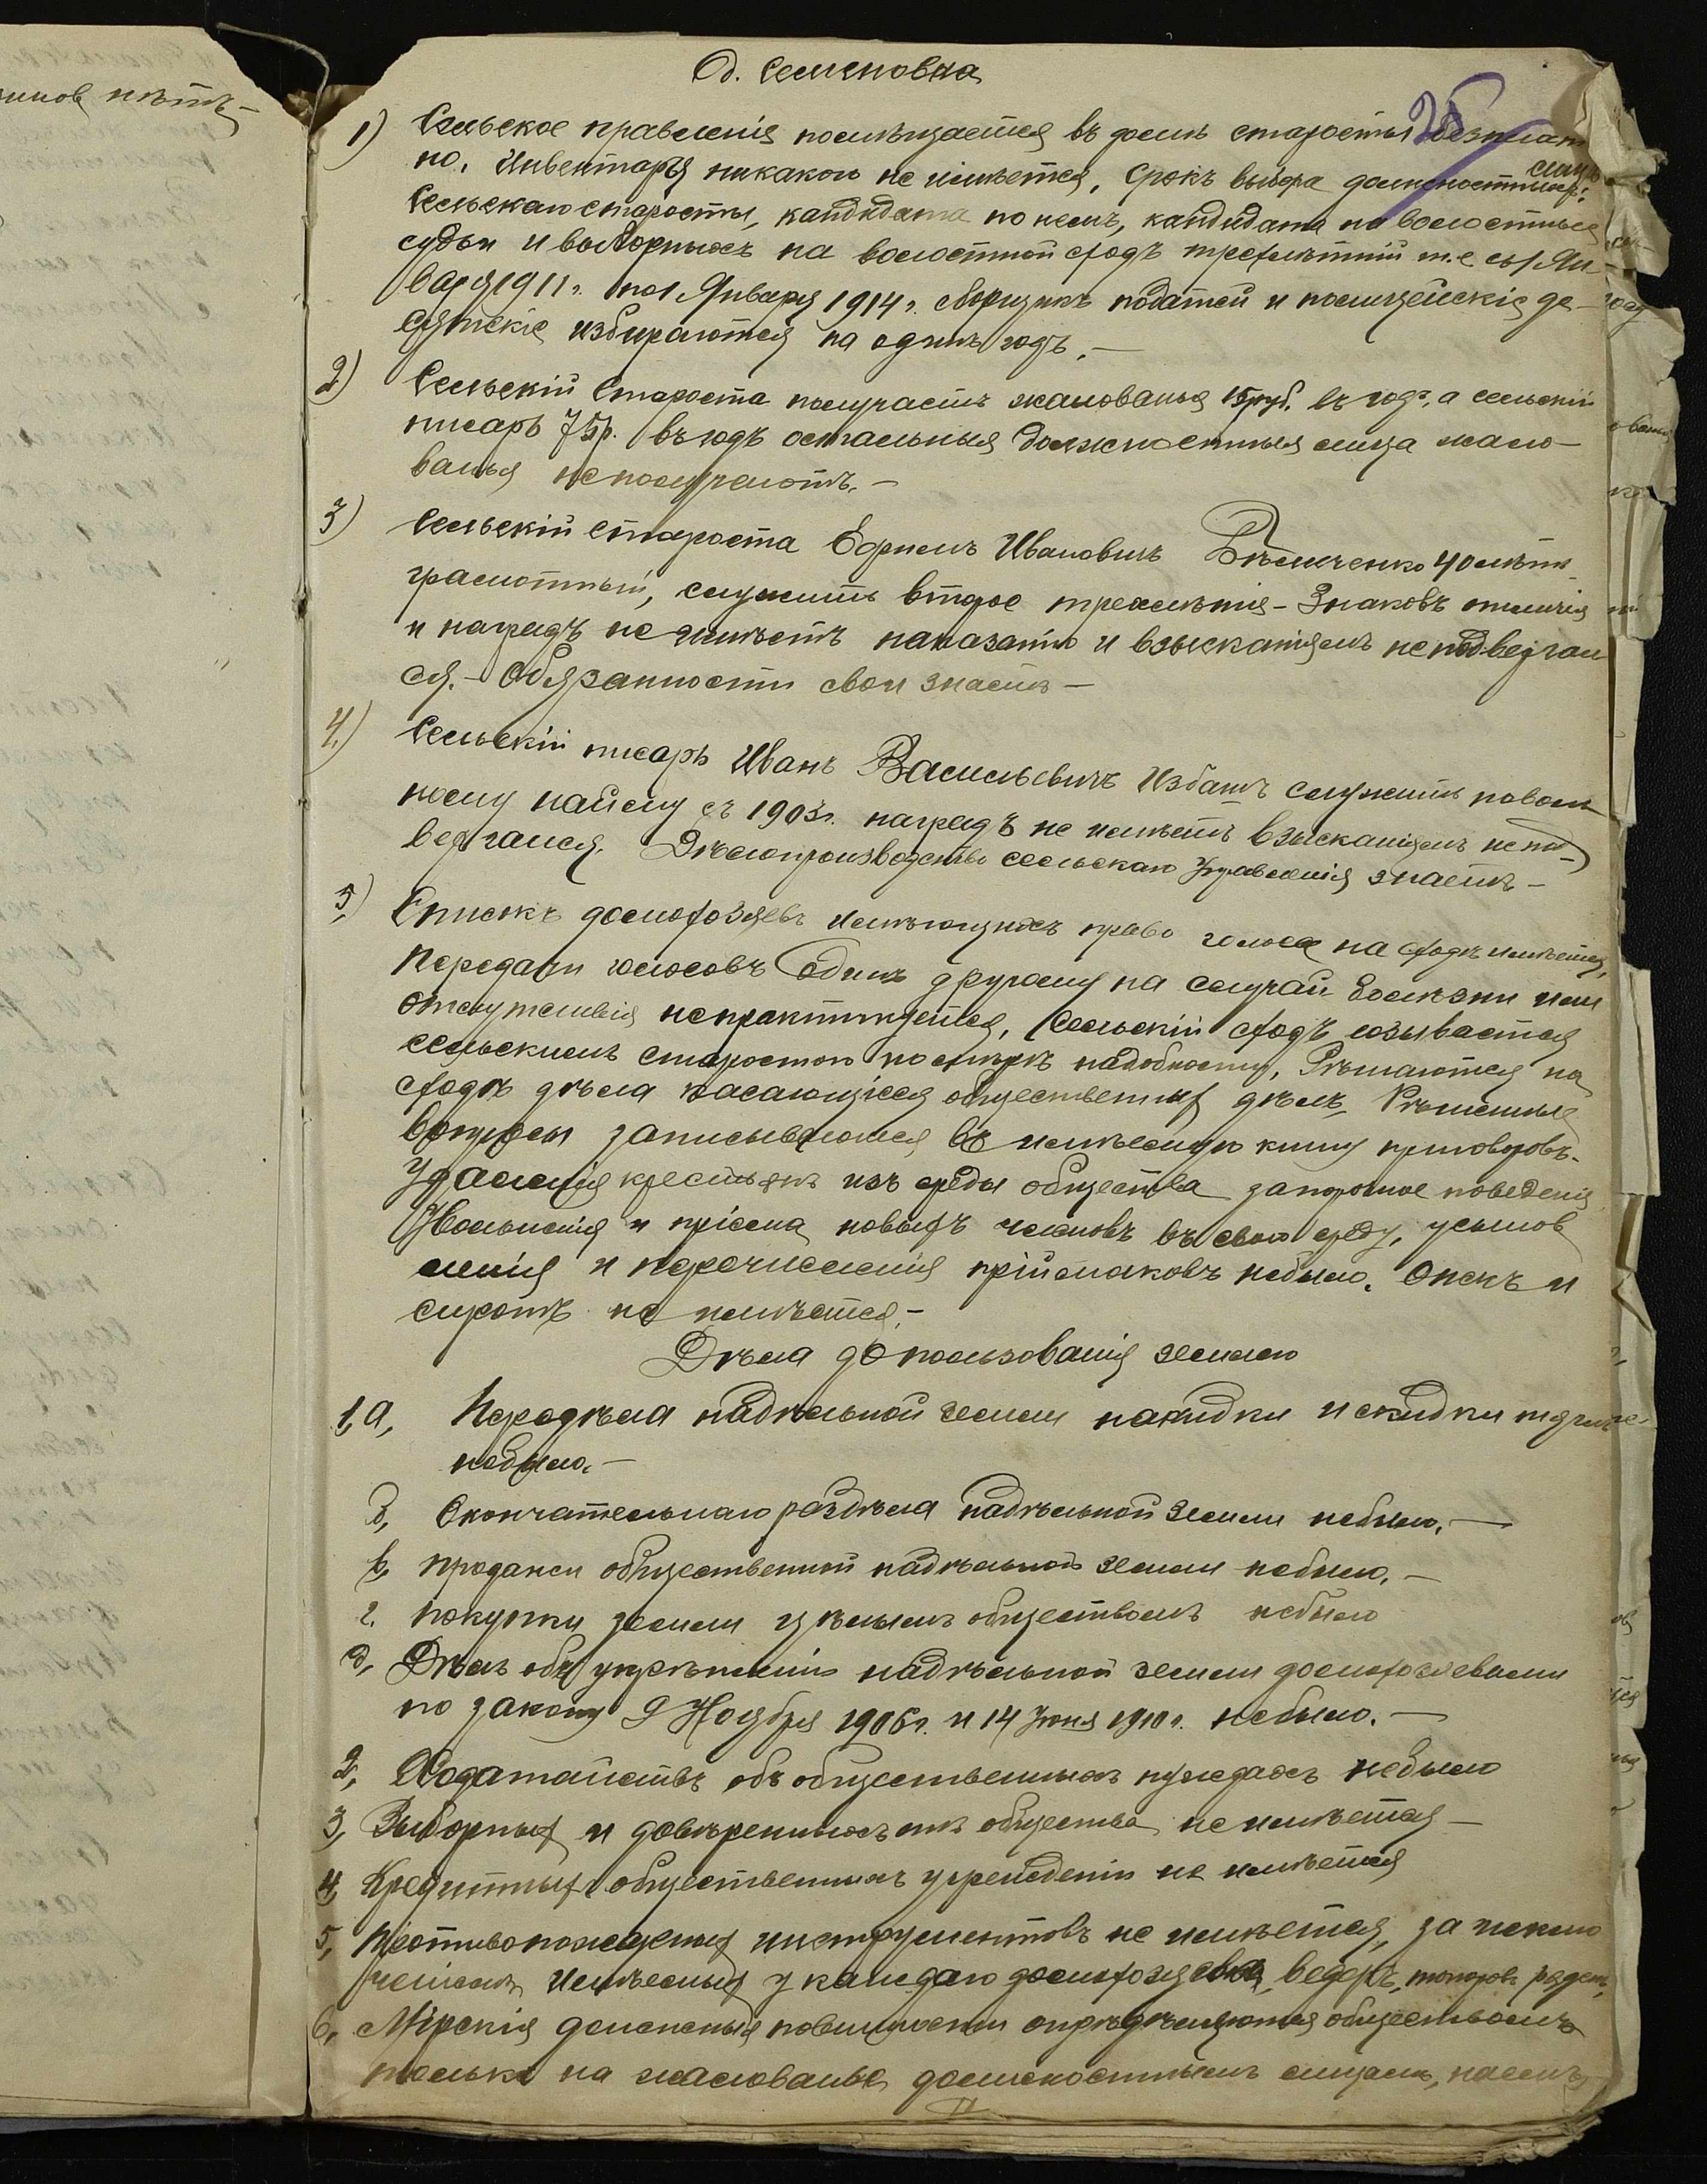 д. Семеновка
1) Сельское правленія помѣщается въ домѣ старосты безплат
но. Инвентаря никакого не имѣется, Срокъ выбора должностныхъ лицъ:
Сельскаго старосты, кандидата по немъ, кандидата на волостные
судьи и выборныхъ на волостной сходъ трехлѣтній т.е. съ 1 Ян-
варя 1911 г. по 1 Января 1914 г. сборщикъ податей и полицейскіе де-
сятскіе избираются на одинъ годъ.—
2) Сельскій Староста получаетъ жалованья 15 руб. въ годъ, а сельскій
писарь 75 р. въ годъ остальныя должностныя лица жало-
ванья не получаютъ.—
3) Сельскій Староста Ефимъ Ивановичъ 40 лѣтъ
грамотный, служитъ второе трехлѣтія - Знаковъ отличія
и наградъ не имѣетъ наказанію и взысканіямъ не подвергал
ся.- Обязанности свои знаетъ—
4.) Сельскій писарь Иванъ Васильевичъ служитъ по воль
ному найму съ 1903 г. наградъ не имѣетъ взысканіямъ не под-
вергался. Дѣлопроизводство сельскаго Управленія знаетъ—
5,) Списокъ домохозяевъ имѣющихъ право голоса на сходѣ имѣется,
Передачи голосовъ Одинъ другому на случай болѣзни или
отсутствія не практикуется, Сельскій сходъ созывается
сельскимъ старостою по мѣрѣ надобности, Рѣшаются на
сходѣ дѣла касающіеся общественных дѣлъ Рѣшенные
вопросы записываются въ имѣемую книгу приговоровъ.
Удаленія крестьянъ изъ среды общества за порочное поведенія
Увольненія и пріема новыхъ членовъ въ свою среду, усынов
ленія и перечисленія пріймаковъ небыло. Опекъ и
сиротъ не имѣется.—
Дѣла до пользованія землею
1, а, Передѣла надѣльной земли накидки и скидки
небыло.—
б, Окончательнаго раздѣла надѣльной земли небыло.—
в, продажи общественной надѣльной земли небыло.—
г. покупки земли цѣлымъ обществомъ небыло
д, Дѣлъ объ укрѣпленіи надѣльной земли домохозяевами
по закону 9 Ноября 1906 г. и 14 Іюня 1910 г. небыло.—
2, Ходатайствъ объ общественныхъ нуждахъ небыло
3, Выборных и довѣренныхъ отъ общества не имѣется—
4, Кредитных общественныхъ учрежденій не имѣется
5, Противопожарных инструментовъ не имѣется, за исклю
ченіемъ имѣемых у каждаго домохозяевъ, ведеръ, топоровъ
6, Мірскія денежныя повинности опредѣляются обществомъ
только на жалованье должностнымъ лицамъ, наемъ